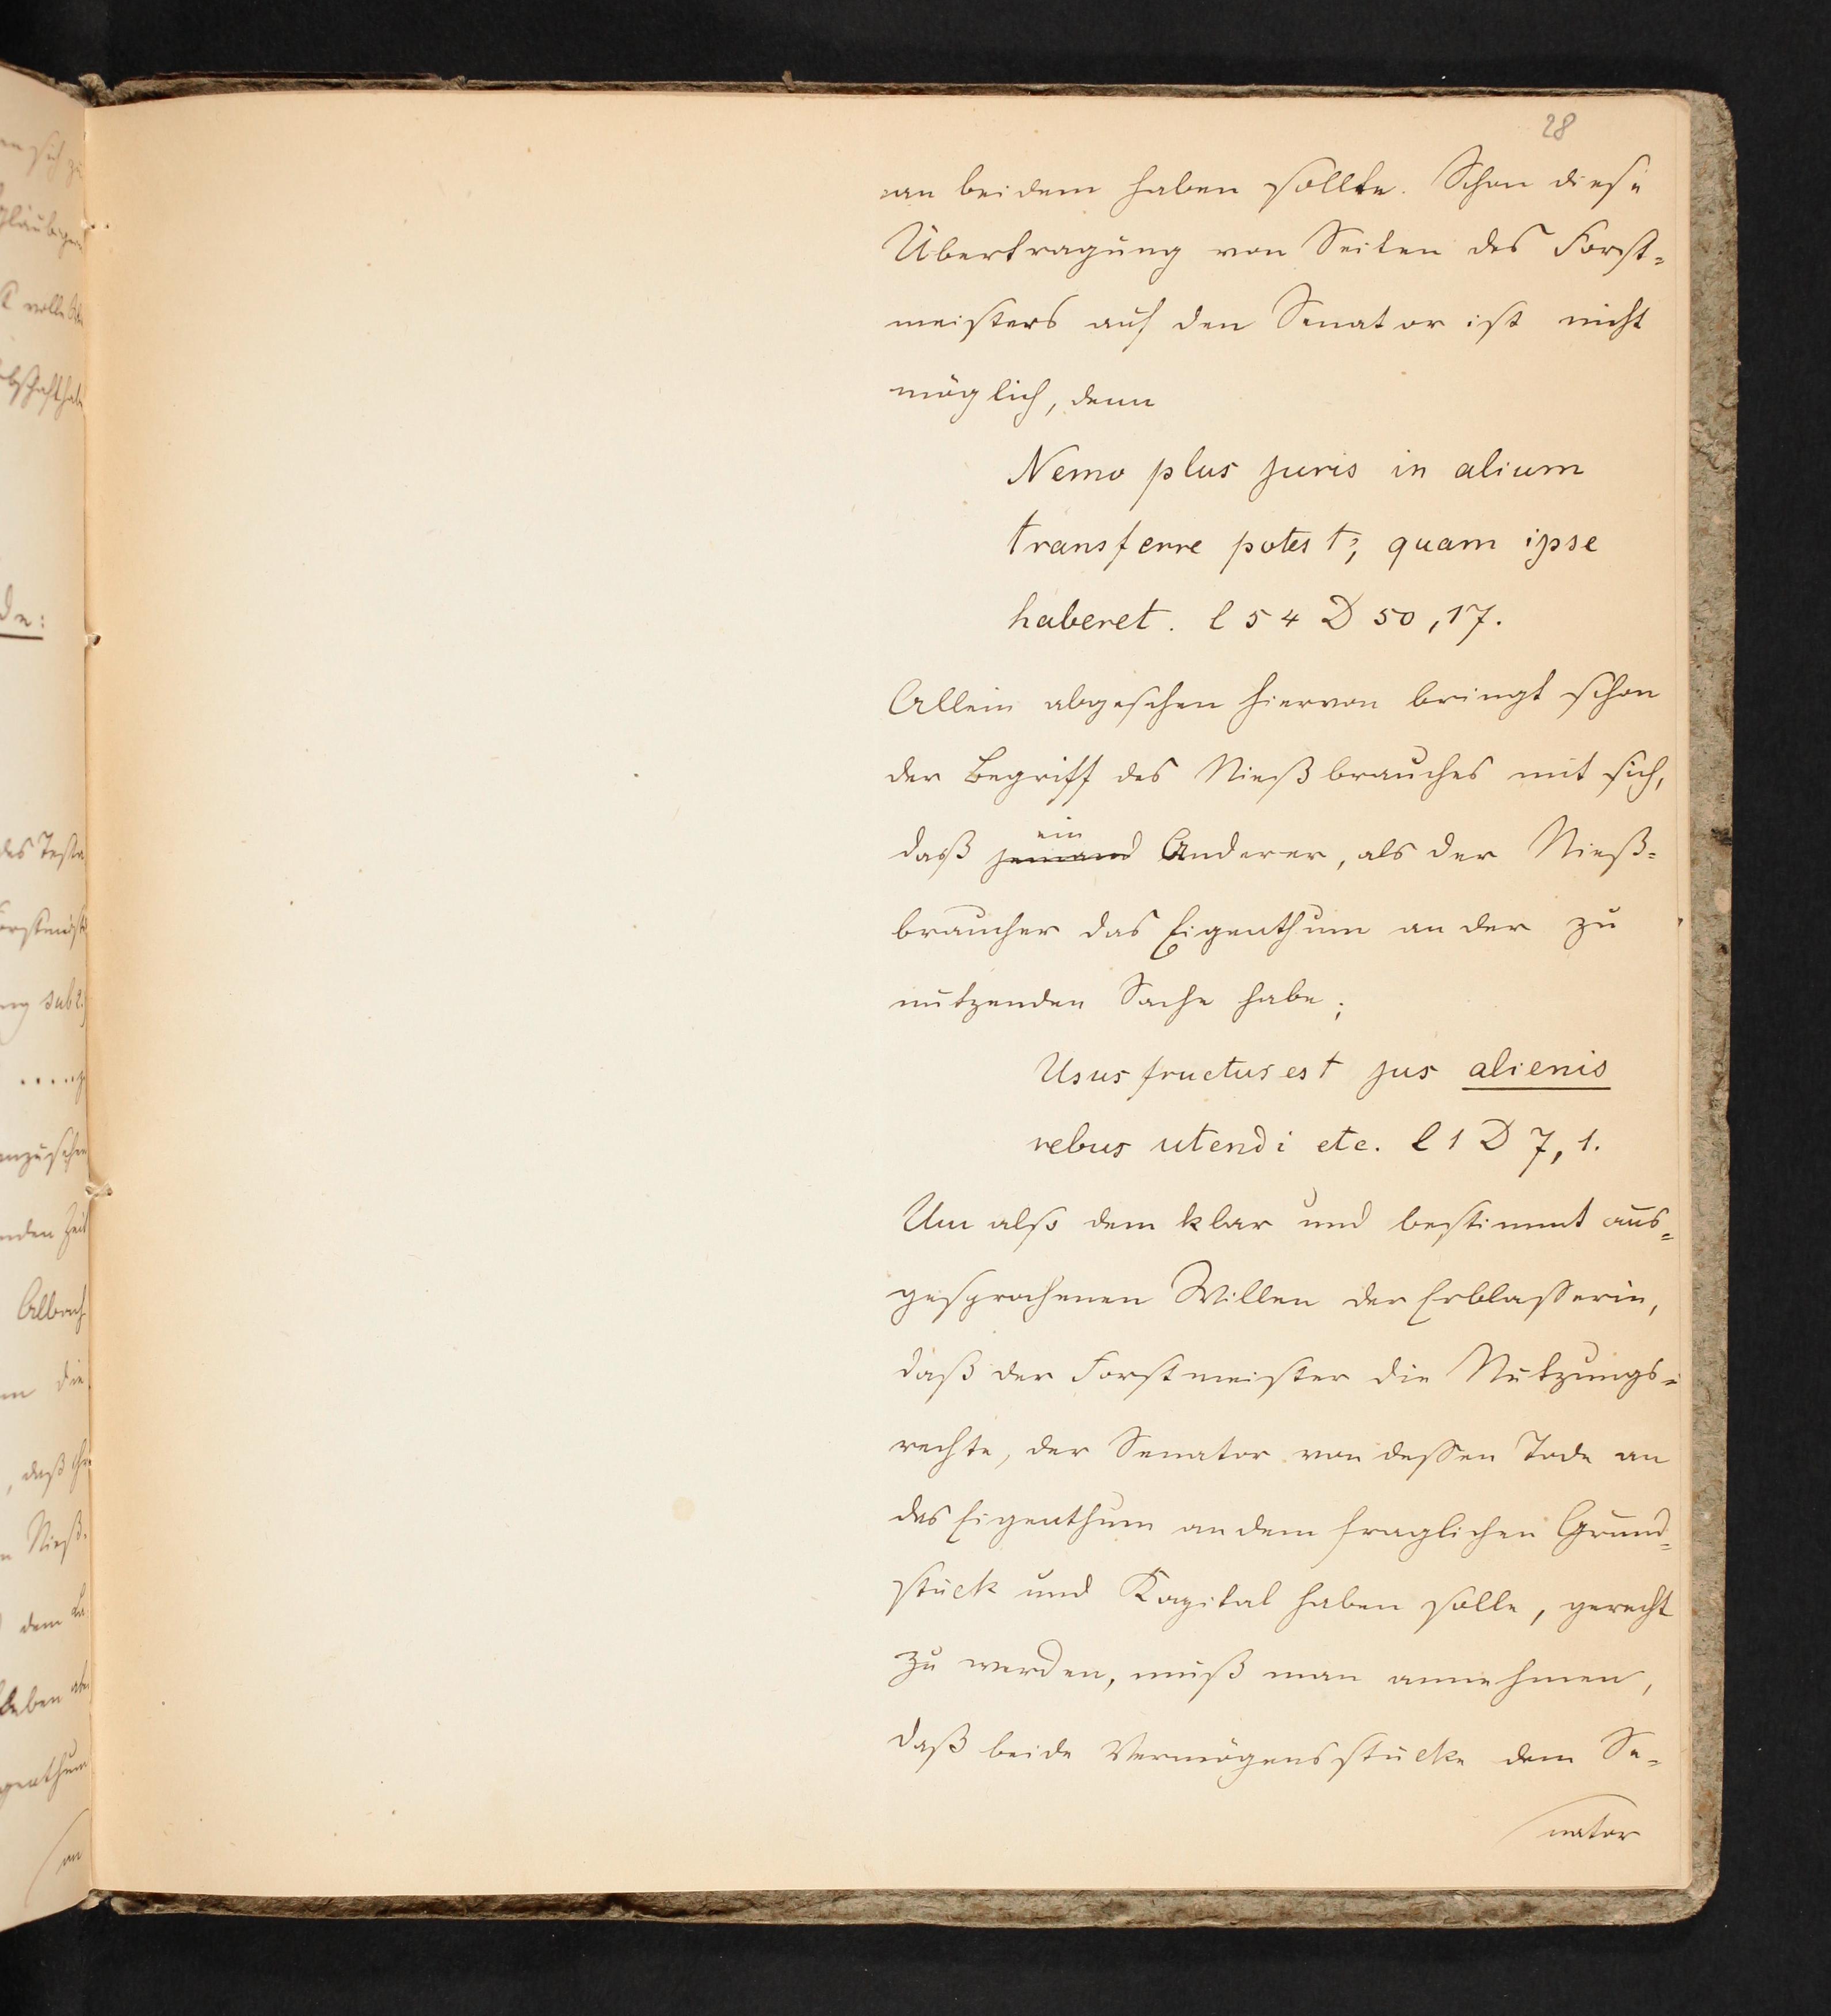 28
an beidem haben sollte. Schon diese
Übertragung von Seiten des Forst=
meisters auf den Senator ist nicht
möglich, denn
Nemo plus juris in alium
transferre potest, quam ipse
haberet. l 54 D 50, 17.
Allein abgesehen hiervon bringt schon
der Begriff des Nießbrauches mit sich,
ein
daß jemand Anderer, als der Nieß=
braucher das Eigenthum an der zu
nutzenden Sache habe;
Usus fructus est jus alienis
rebus utendi etc. l 1 D 7, 1.
Um also dem klar und bestimmt aus=
gesprochenen Willen der Erblasserin,
daß der Forstmeister die Nutzungs=
rechte, der Senator von dessen Tode an
das Eigenthum an dem fraglichen Grund=
stück und Kapital haben solle, gerecht
zu werden, muß man annehmen,
daß beide Vermögensstücke dem Se=
nator